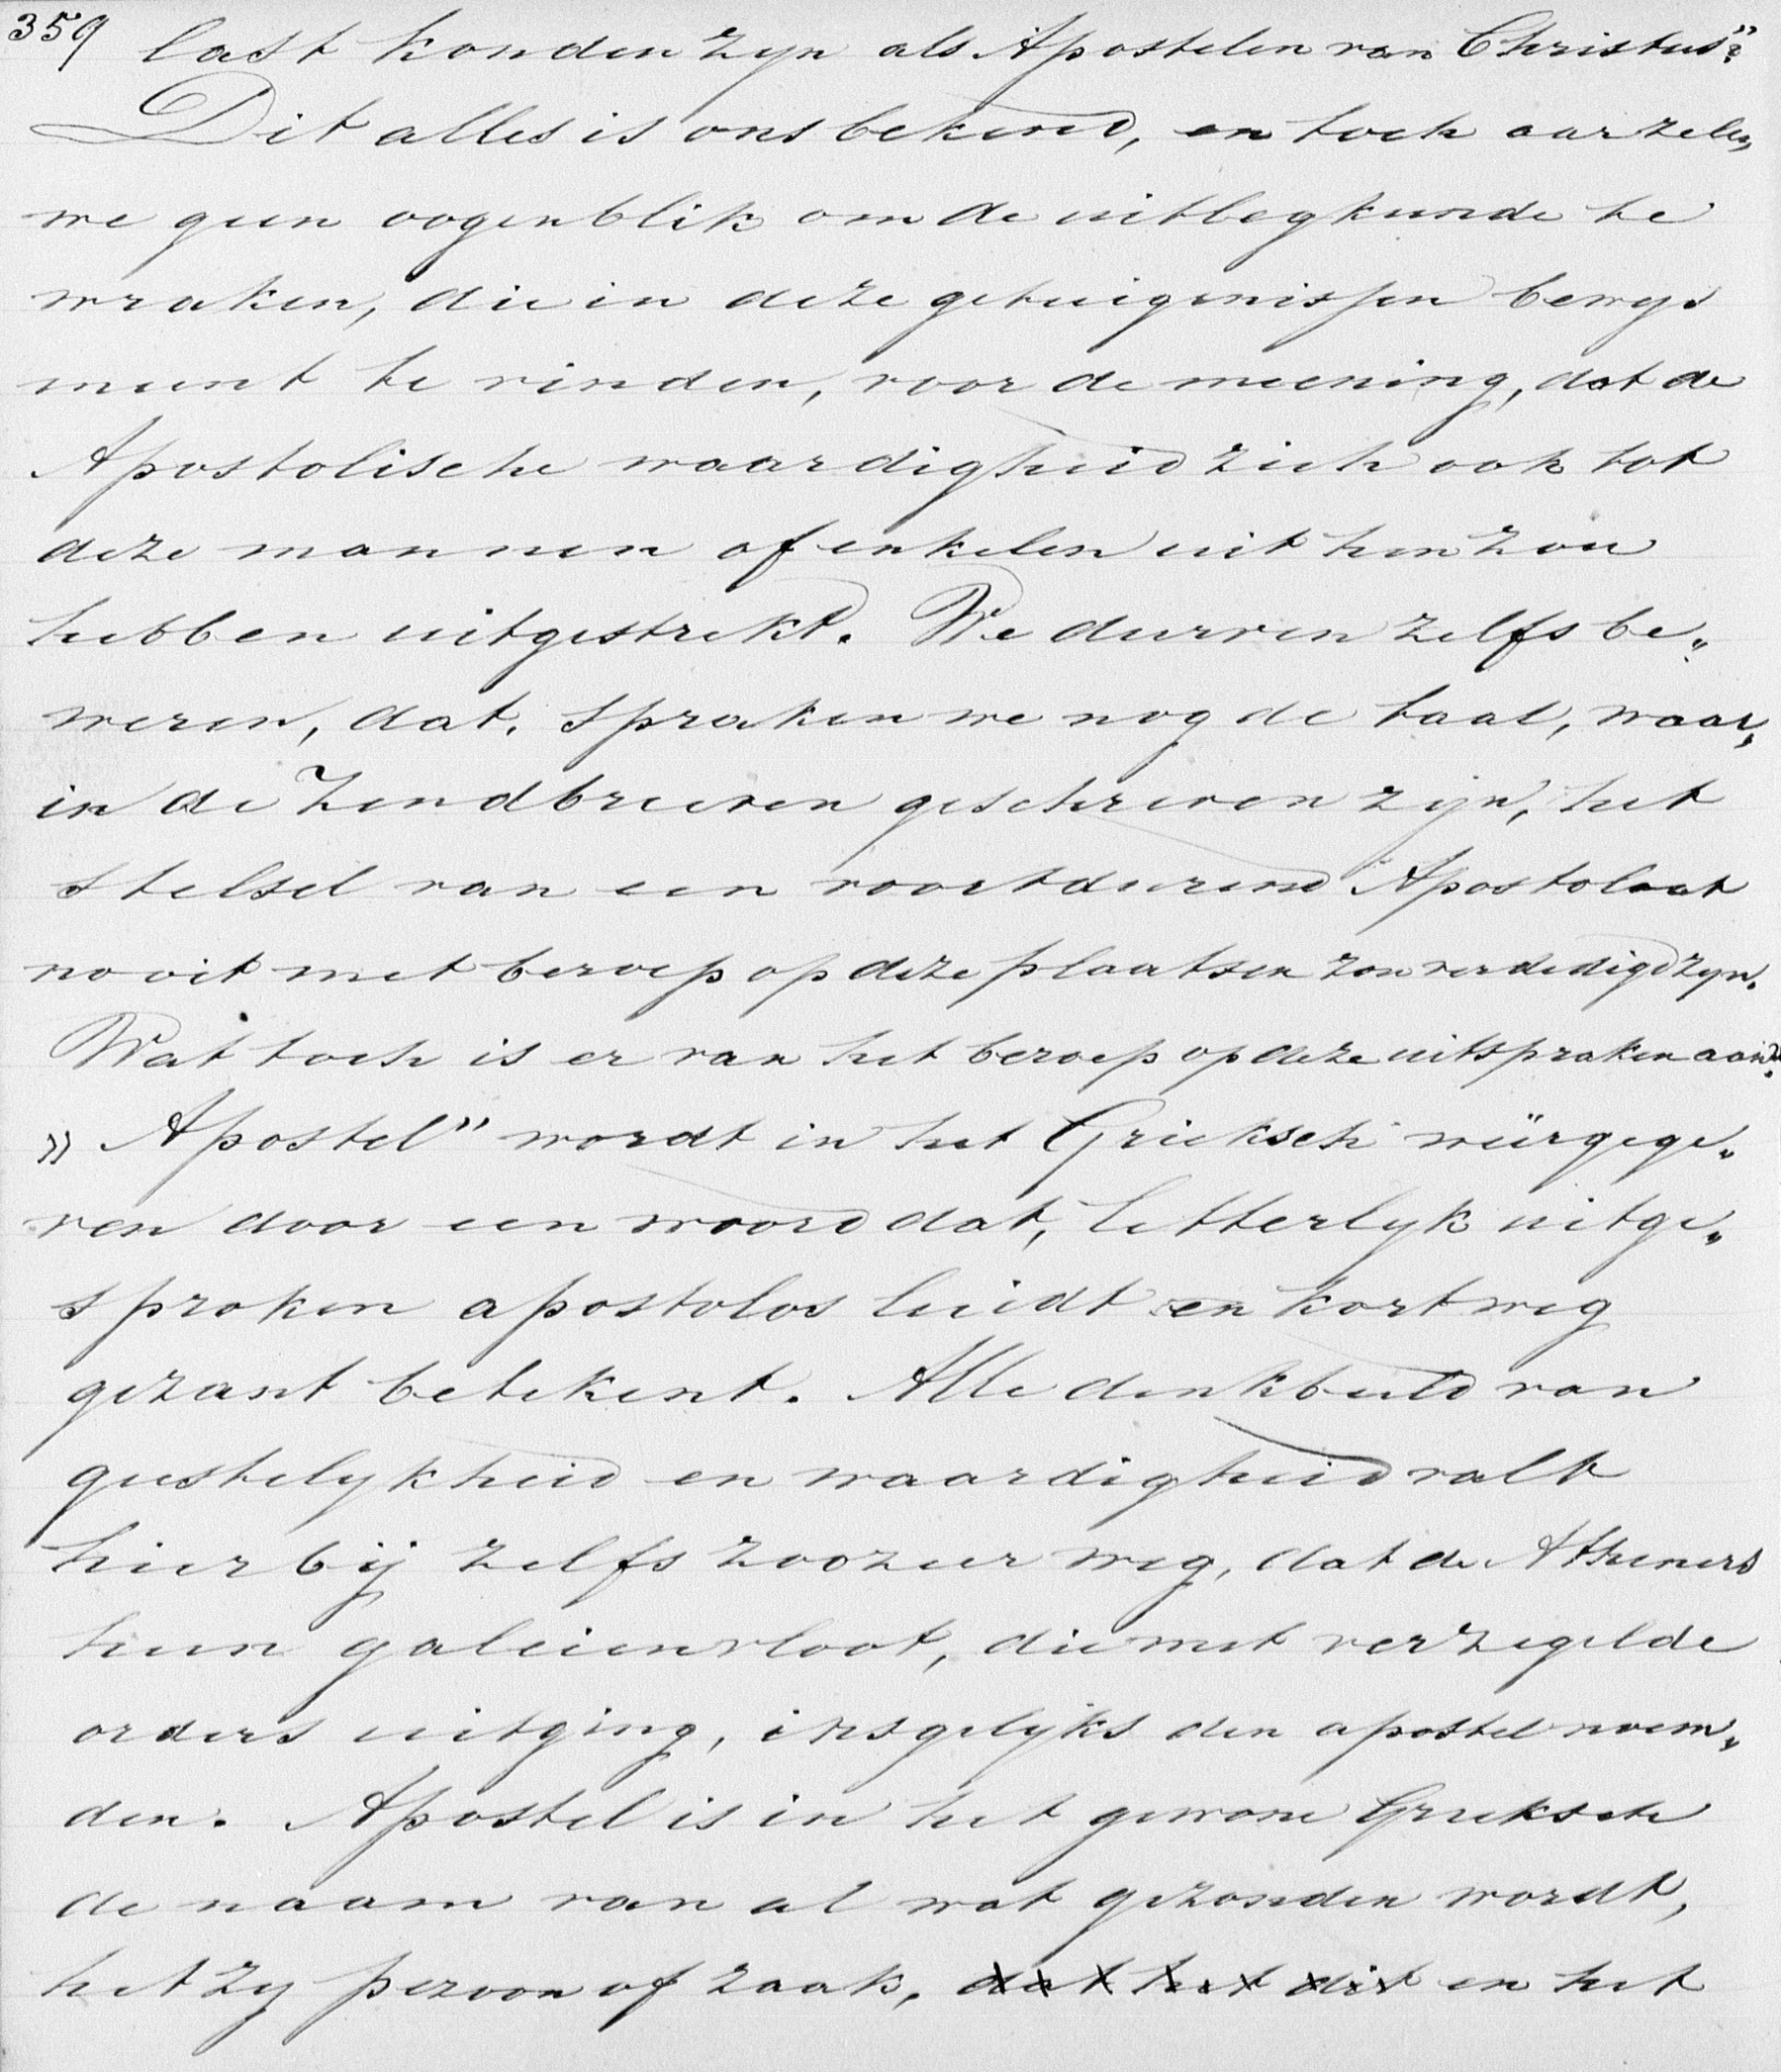 359 last konden zyn als Apostelen van Christus"?
Dit alles is ons bekend, en toch aarzelen
we geen oogenblik om de uitlegkunde te
wraken, die in deze getuigenissen bewys
meent te vinden, voor de meening, dat de
Apostolische waardigheid zich ook tot
deze mannen of enkelen uit hen zou
hebben uitgestrekt. We durven zelfs be„
weren, dat, spraken we nog de taal, waar„
in de Zendbrieven geschreven zijn, het
stelsel van een voortdurend Apostolaat
nooit met beroep op deze plaatsen zou verdedigd zyn.
Wat toch is er van het beroep op deze uitspraken aan?
» Apostel" wordt in het Grieksch weêrgege„
ven door een woord dat, letterlyk uitge„
sproken apostolos luidt en kortweg
gezant betekent. Alle denkbeeld van
geestelykheid en waardigheid valt
hierbij zelfs zoozeer weg, dat de Atheners
hun galeienvloot, die met verzegelde
orders uitging, insgelyks den apostel noem„
den. Apostel is in het gewone Grieksch
de naam van al wat gezonden wordt,
het zy persoon of zaak, dat het dit en het